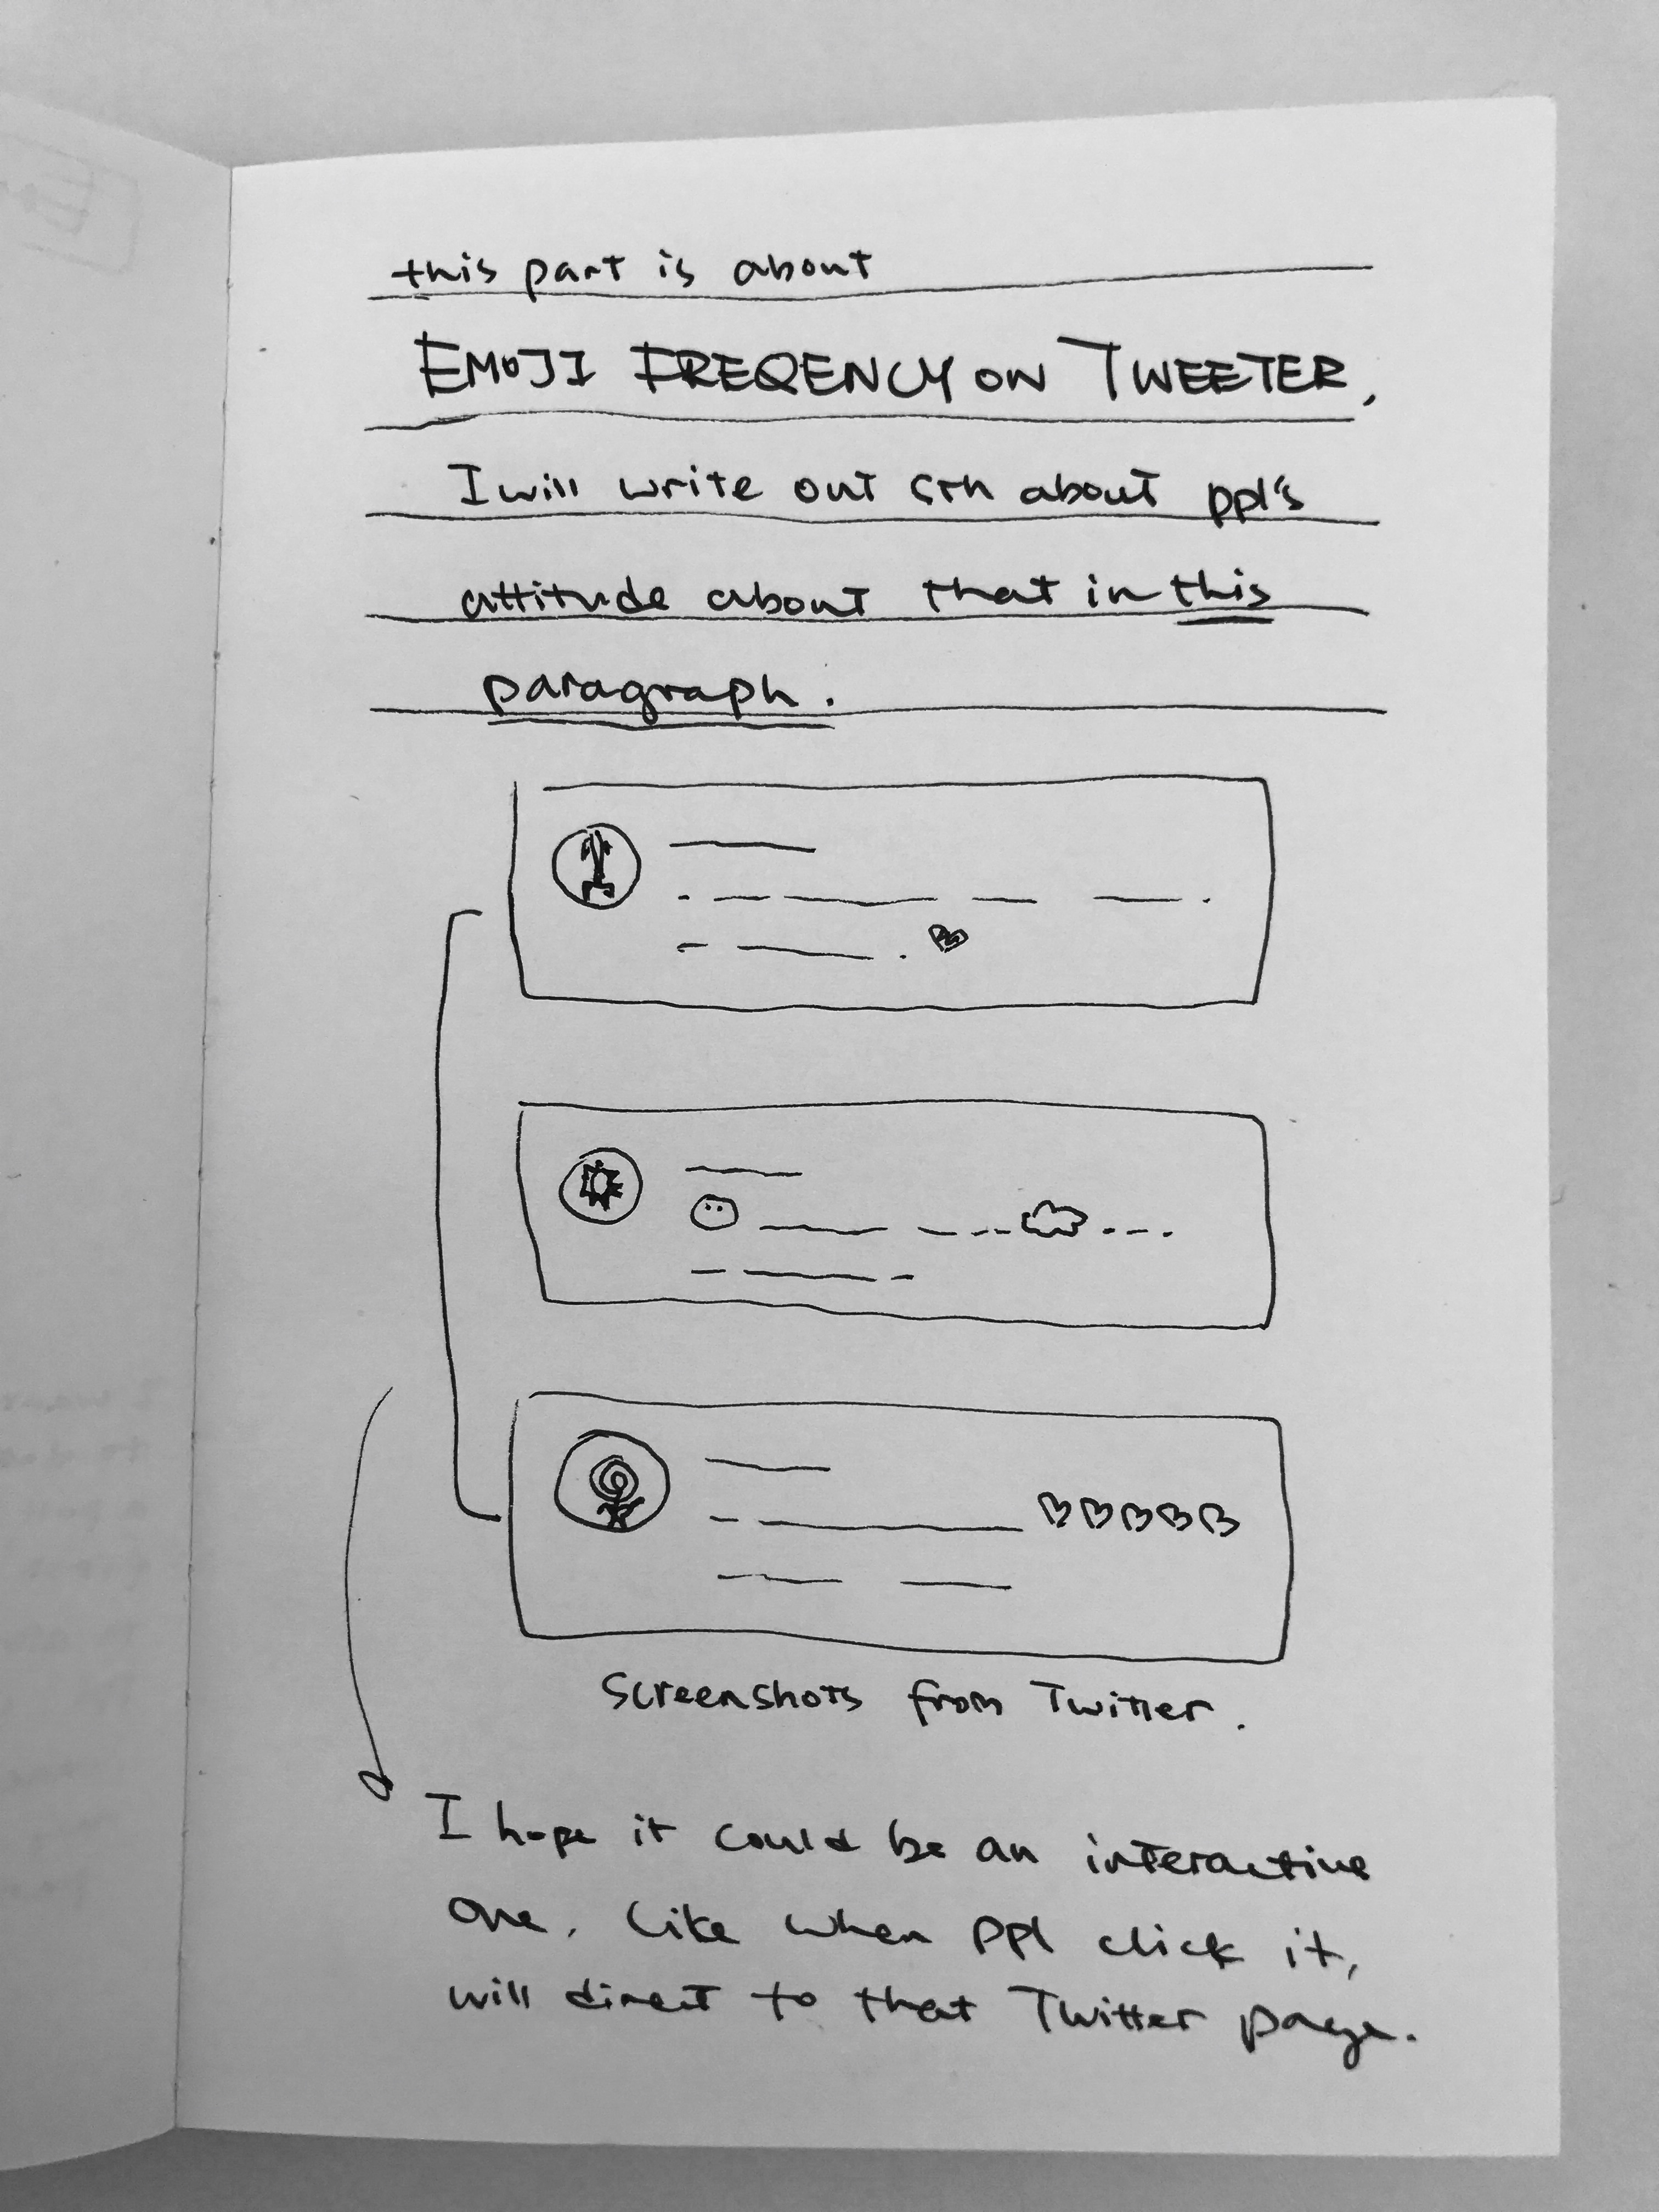 this part is about
EMOJI FREQENCY ON TWEETER,
I will write out sth about ppl's
attitude about that in this
paragraph.
Screenshots from Twitter.
I hope it could be an interactive
one. Like when ppl click it,
will direct to that Twitter page.